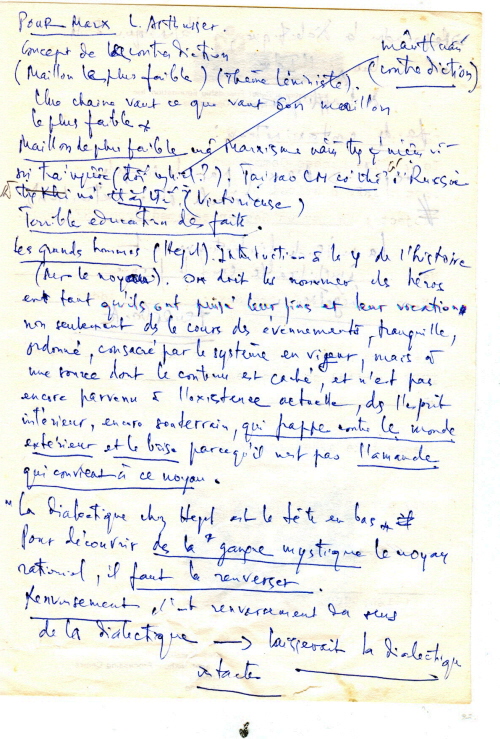 POUR MARX L. Althusser
Concept de la contradiction mâuthuẫn
(Maillon le plus faible) (Thème léniniste). (contradiction)
Une chaîne vaut ce que vaut son maillon
le plus faible.
Maillon le plus faible mà Marxisme
Tại sao CM có thể ở Russie
(Victorieuse)
Terrible éducation des faits.
Les grands hommes (Hegel). Introduction à la φ de l'histoire
(sur le noyau). On doit les nommer des héros
en tant qu'ils ont puisé leur fins et leur vocation
non seulement ds le cours des évennements, tranquille,
ordonné, consacré par le système en vigueur, mais à
une source dont le contenu est caché, et n'est pas
encore parvenu à l'existence actuelle, ds l'esprit
intérieur, encore souterrain, qui frappe contre le monde
extérieur et le brise parcequ'il n'est pas l'amande
qui convient à ce noyau.
"La dialectique chez Hegel est la tête en bas.
Pour découvrir ds la gangue mystique le noyau
rationnel, il faut la renverser.
Renversement, renversement du sens
de la dialectique → laisserait la dialectique
intacte